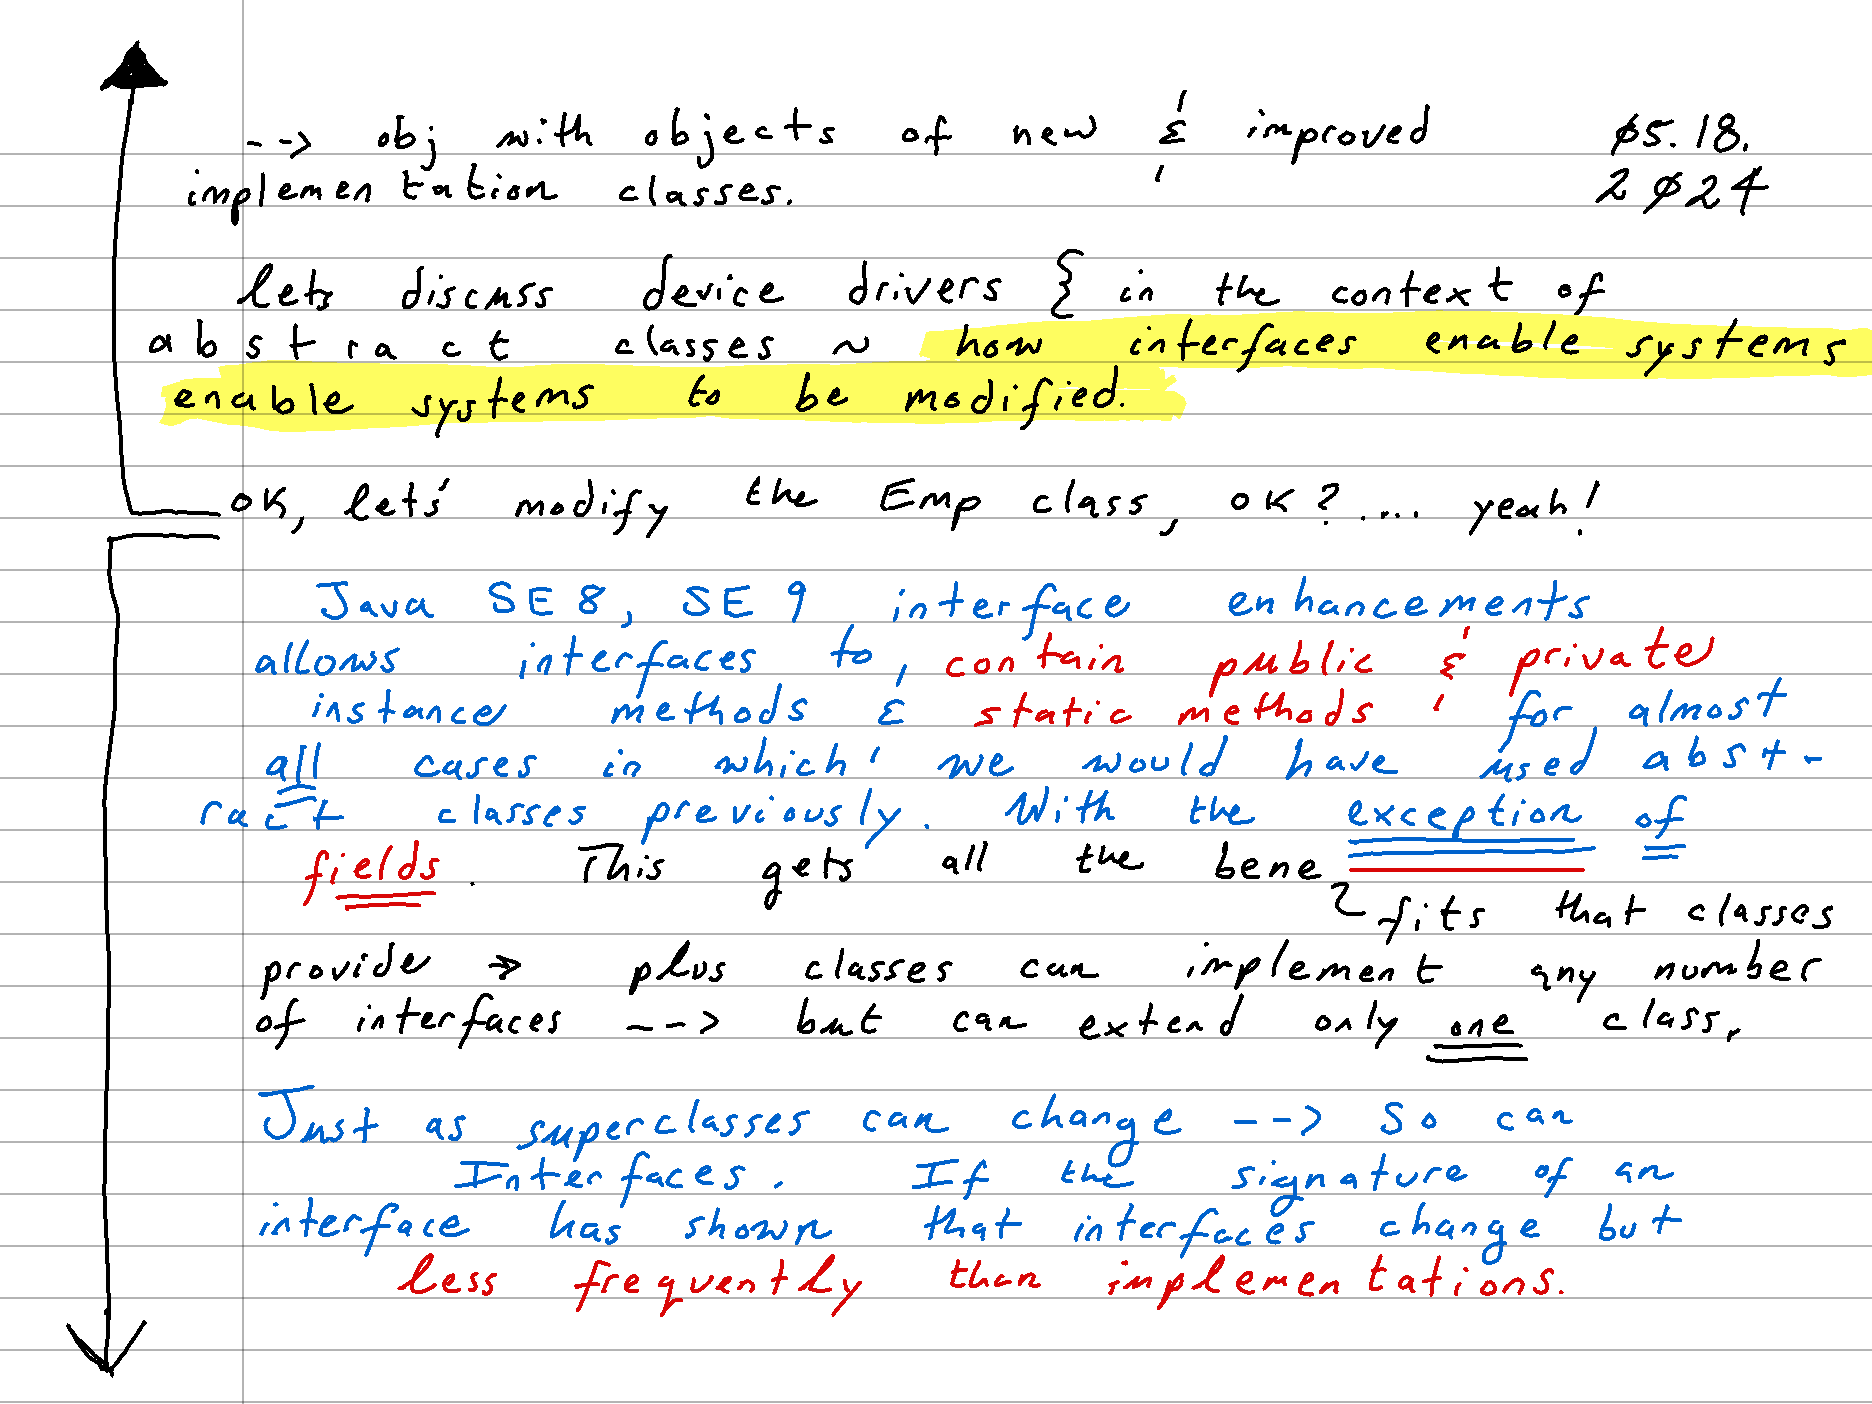 --> obj with objects of new & improved Ø5.18.
implementation classes. 2Ø24
lets discuss device drivers { in the context of
abstract classes ~ how interfaces enable systems
enable systems to be modified.
OK, let's modify the Emp class, OK?.... yeah!
Java SE8, SE9 interface enhancements
allows interfaces to, contain public & private
instance methods & static methods for almost
all cases in which we would have used abst-
ract classes previously. With the exception of
fields. This gets all the bene
fits that classes
provide → plus classes can implement any number
of interfaces --> but can extend only one class.
Just as superclasses can change --> So can
Interfaces. If the signature of an
interface has shown that interfaces change but
less frequently than implementations.